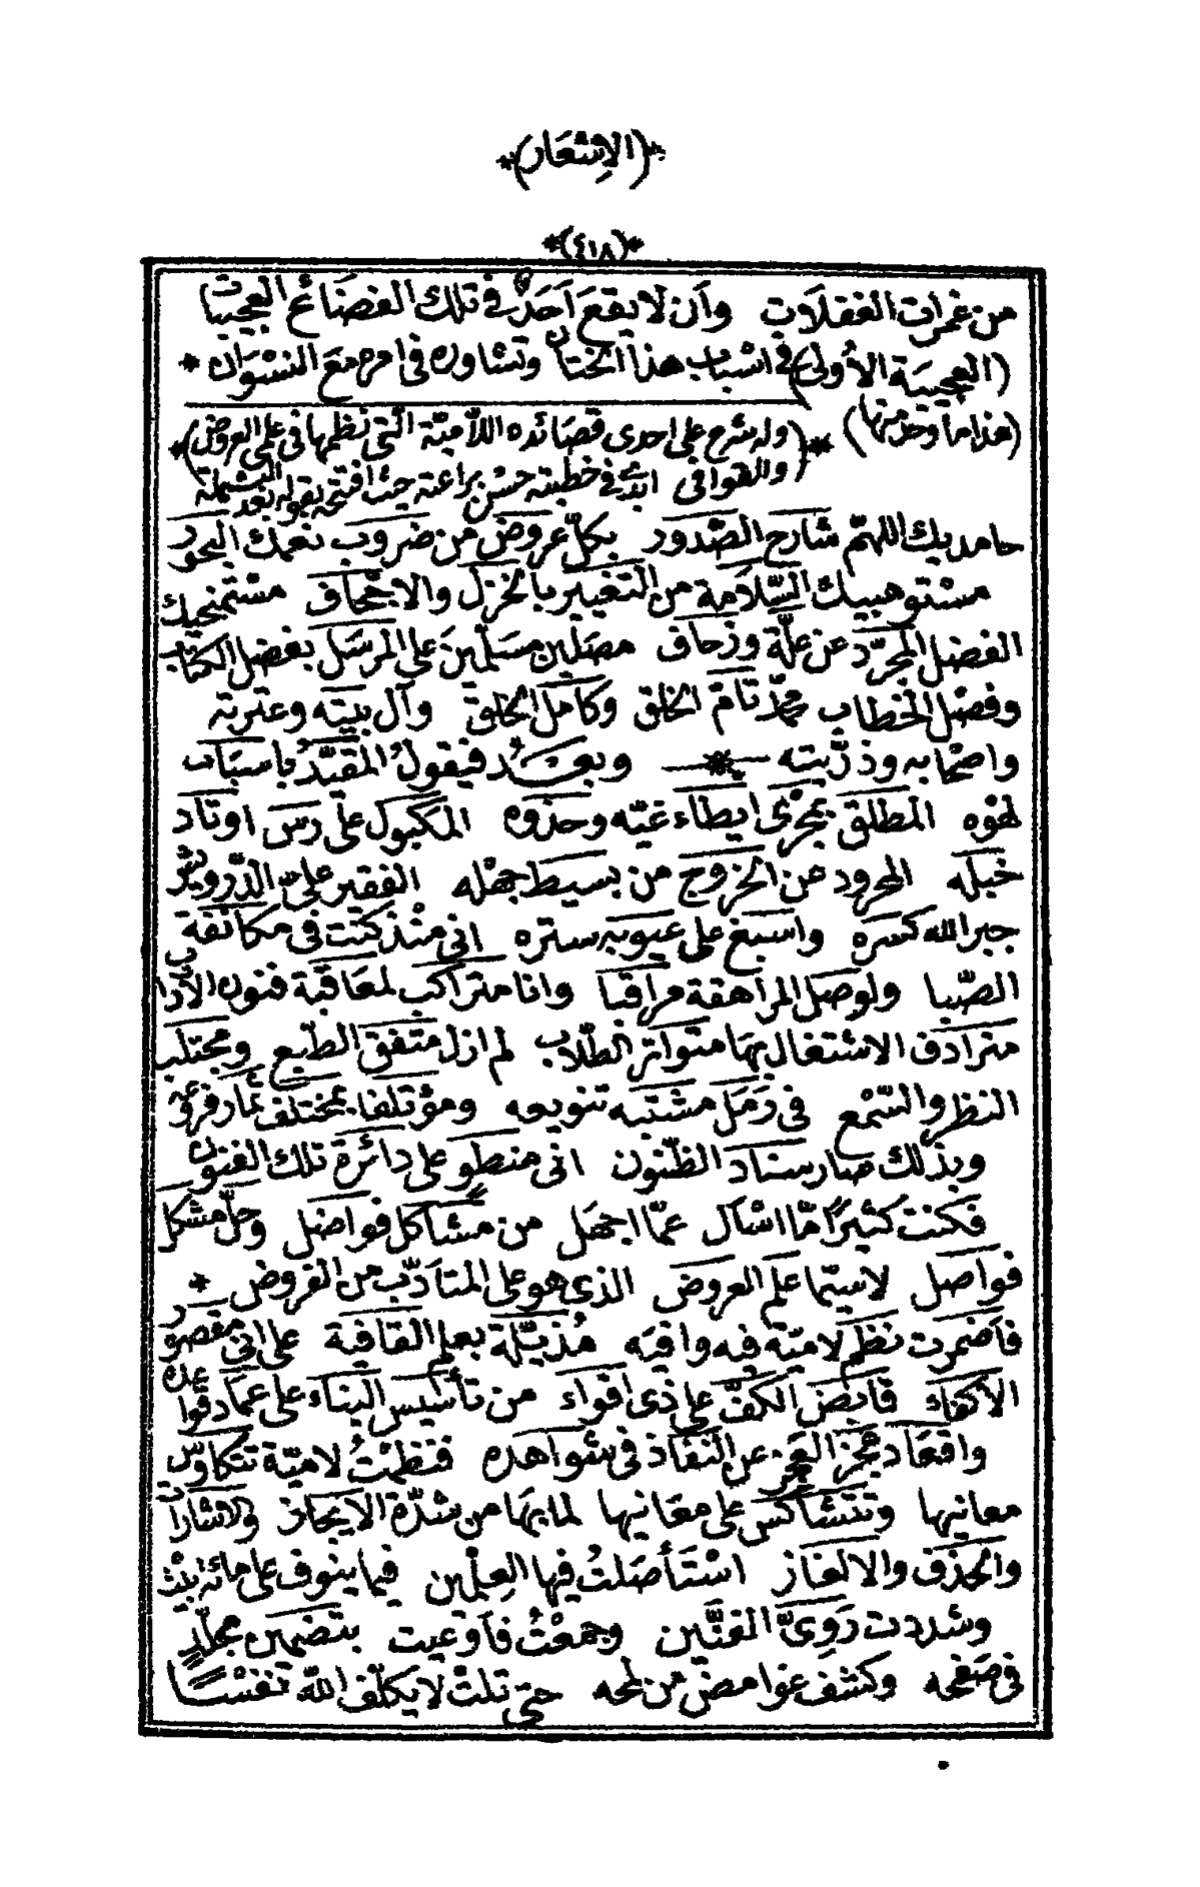 *(الإشعار)*
*(٤١٨)*
من غمرات الغفلات وأن لا يقعَ أحَدٌ في تلك الفضَائح العجيبات
(العجيبَة الأُولى) في اسْباب هذا الختان وتشاوره في امره معَ النسْوَان *
(هذا ما وجد منها) * (وله شرح على احدى قصَائده اللاّميّة التي نظمها في علمي العروض) *
(والقوافي ابدع في خطبته حسْن براعته حيث افتتحه بقوله بعد البسْملة)
حامديك اللهمّ شارح الصّدور بكلّ عروض من ضروب نعمك البحور
مسْتوهبيك السّلاَمة من التغيير بالخزل والاجحاف مسْتمنحيك
الفضل المجرّد عن علّة وزحاف مصَلين مسَلّمينَ على المرسَل بفضل الكتاب
وفصْل الخطاب محمّد تامّ الخلق وكامل الخلق وآل بيته وعترته
واصْحابه وذرّيته * وبعــد فيقولُ المقيَّدُ باسبَاب
لهوْه المطلق بمجرْى ايطاء غيّه وحذوه المكبول على رسَ اوتاد
خبله المحرود عن الخروج من بسيط جهْله الفقير عليّ الدّرويش
جبر الله كسره واسبغ على عيوبه ستره اني منْذ كنت في مكانفة
الصّبا ولوصل المراهقة مراقبا وانا متراكب لمعَاقبة فنون الآداب
مترادف الاشتغال بهَا متواتر الطلّاب لم ازل متفق الطبْع ومجتلب
النظر والسّمْع في رَمَل مشتبه تنويعه ومؤتلفا بمختلف ثمار فرعه
وبذلك صار سناد الظّنون اني منطو على دائرة تلك الفنون
فكنت كثيرًا مّا اسْأل عمّا اجهَل من مشاكل فواضل وحلّ مشكل
فواصل لاسيّما علم العروض الذي هو على المتأدّب من الفروض *
فأضمرت نظم لاميّة فيه وافيَه مُذيّلة بعلم القافية على اني مقصور
الأكفاء قابض الكفّ على ذي اقواء من تأسيس البناء على عمَاد قواعده
واقعَاد عجز العجز عن النفَاذ في شواهده فنظمْتُ لاميّة تتكاوَس
معانيها وتتشاكس على معَانيها لما بهَا من شدّة الايجاز والاشارات
والحذف والالغاز اسْتَأصَلتُ فيها العِلْمين فيما ينوف على مائة بيْت
وشددت رَوِيَّ الفنّين وجمعْتُ فأوعيت بتضمين مجلّدٍ
في صَفحه وكشف غوامض من لمحه حتى تلتْ لا يكلّف اللهُ نفسًا